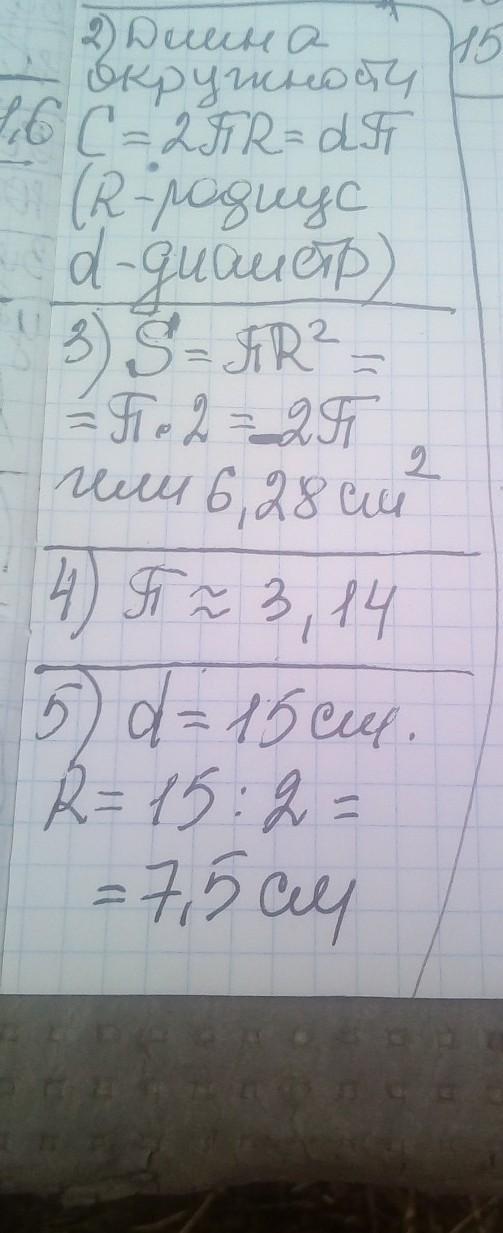 2) Длина
окружности
1,6
C = 2πR = dπ
(R - радиус
d - диаметр)
3) S = πR² =
= π · 2 = 2π
или 6,28 см²
4) π ≈ 3,14
5) d = 15 см.
R = 15 : 2 =
= 7,5 см
15